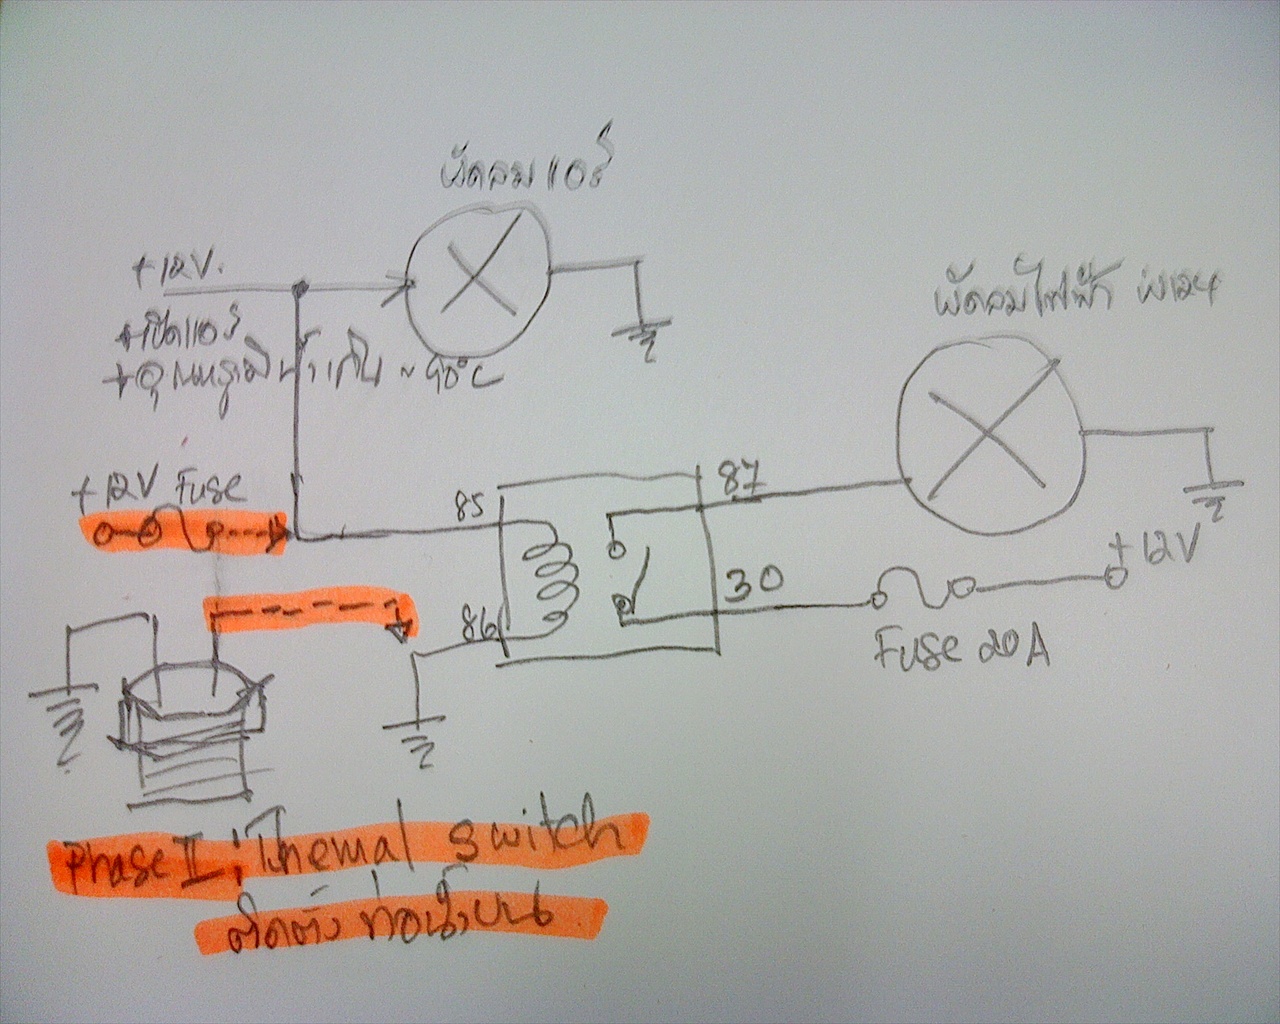 พัดลมแอร์
+12V.
+เปิดแอร์
+อุณหภูมิน้ำเกิน ~ 90°C
พัดลมไฟฟ้า W124
+12V Fuse
85
87
86
30
+12V
Fuse 20A
Phase II ; Themal switch
ติดตั้ง ท่อน้ำบน